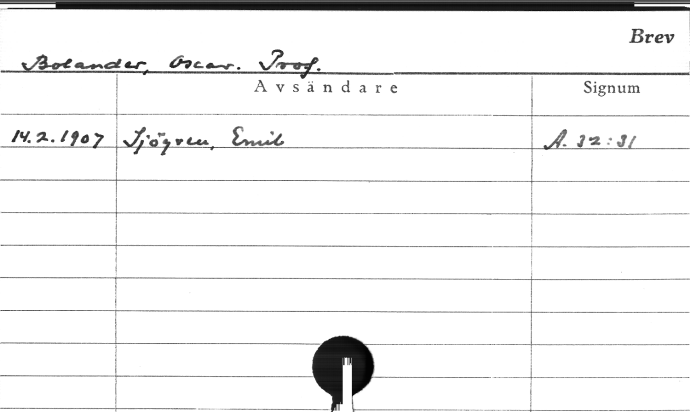 Brev
Bolander, Oscar. Prof.
Avsändare Signum
14.2.1907 Sjögren, Emil A. 32:31